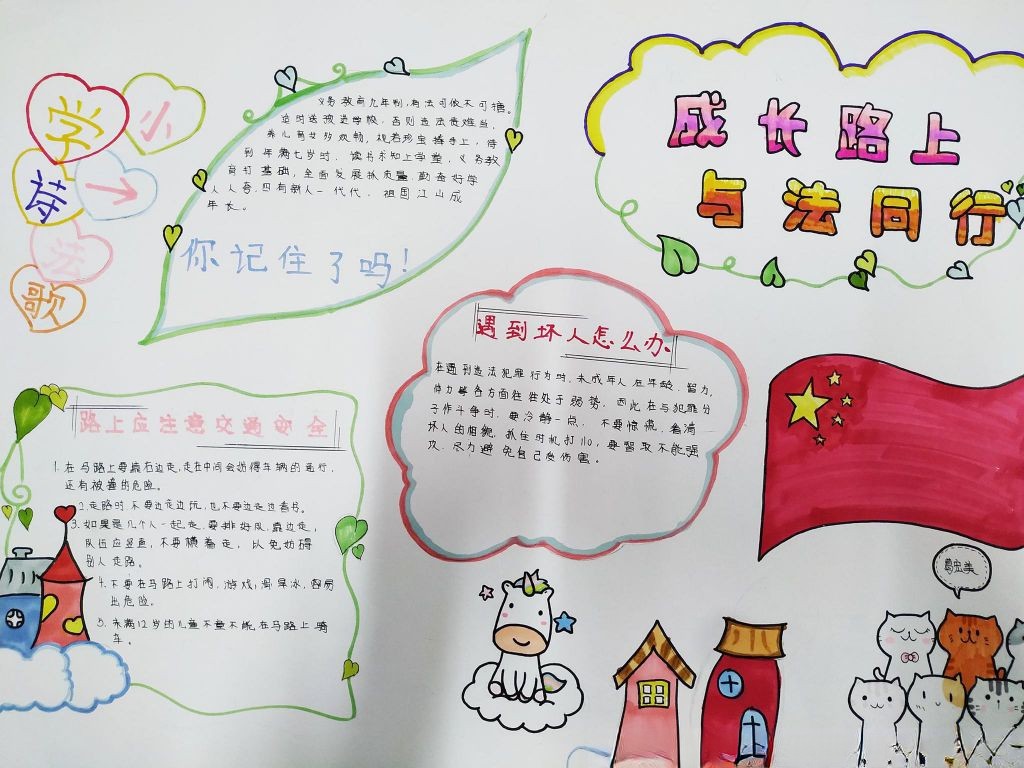 成长路上
与法同行
小
学
一
芽
法
歌
义务教育九年制,有法可依不可犟。
适时送孩进学校,否则违法责难当,
养儿育女多欢畅,视若珍宝捧手上,待
到年满七岁时,读书求知上学堂,义务教
育打基础,全面发展抓质量,勤奋好学
人人夸,四有新人一代代,祖国江山成
年长。
你记住了吗!
遇到坏人怎么办
在遇到违法犯罪行为时,未成年人在年龄、智力、
体力等各方面往往处于弱势,因此在与犯罪分
子作斗争时,要冷静一点,不要惊慌,看清
坏人的相貌,抓住时机打110,要智取不能强
攻,尽力避免自己受伤害。
路上应注意交通安全
1.在马路上要靠右边走,走在中间会妨碍车辆的运行,
还有被撞的危险。
2.走路时不要边走边玩,也不要边走边看书。
3.如果是几个人一起走,要排好队,靠边走,
队伍应竖直,不要横着走,以免妨碍
别人走路。
4.不要在马路上打闹,游戏,滑旱冰,容易
出危险。
5.未满12岁的儿童不能在马路上骑
车。